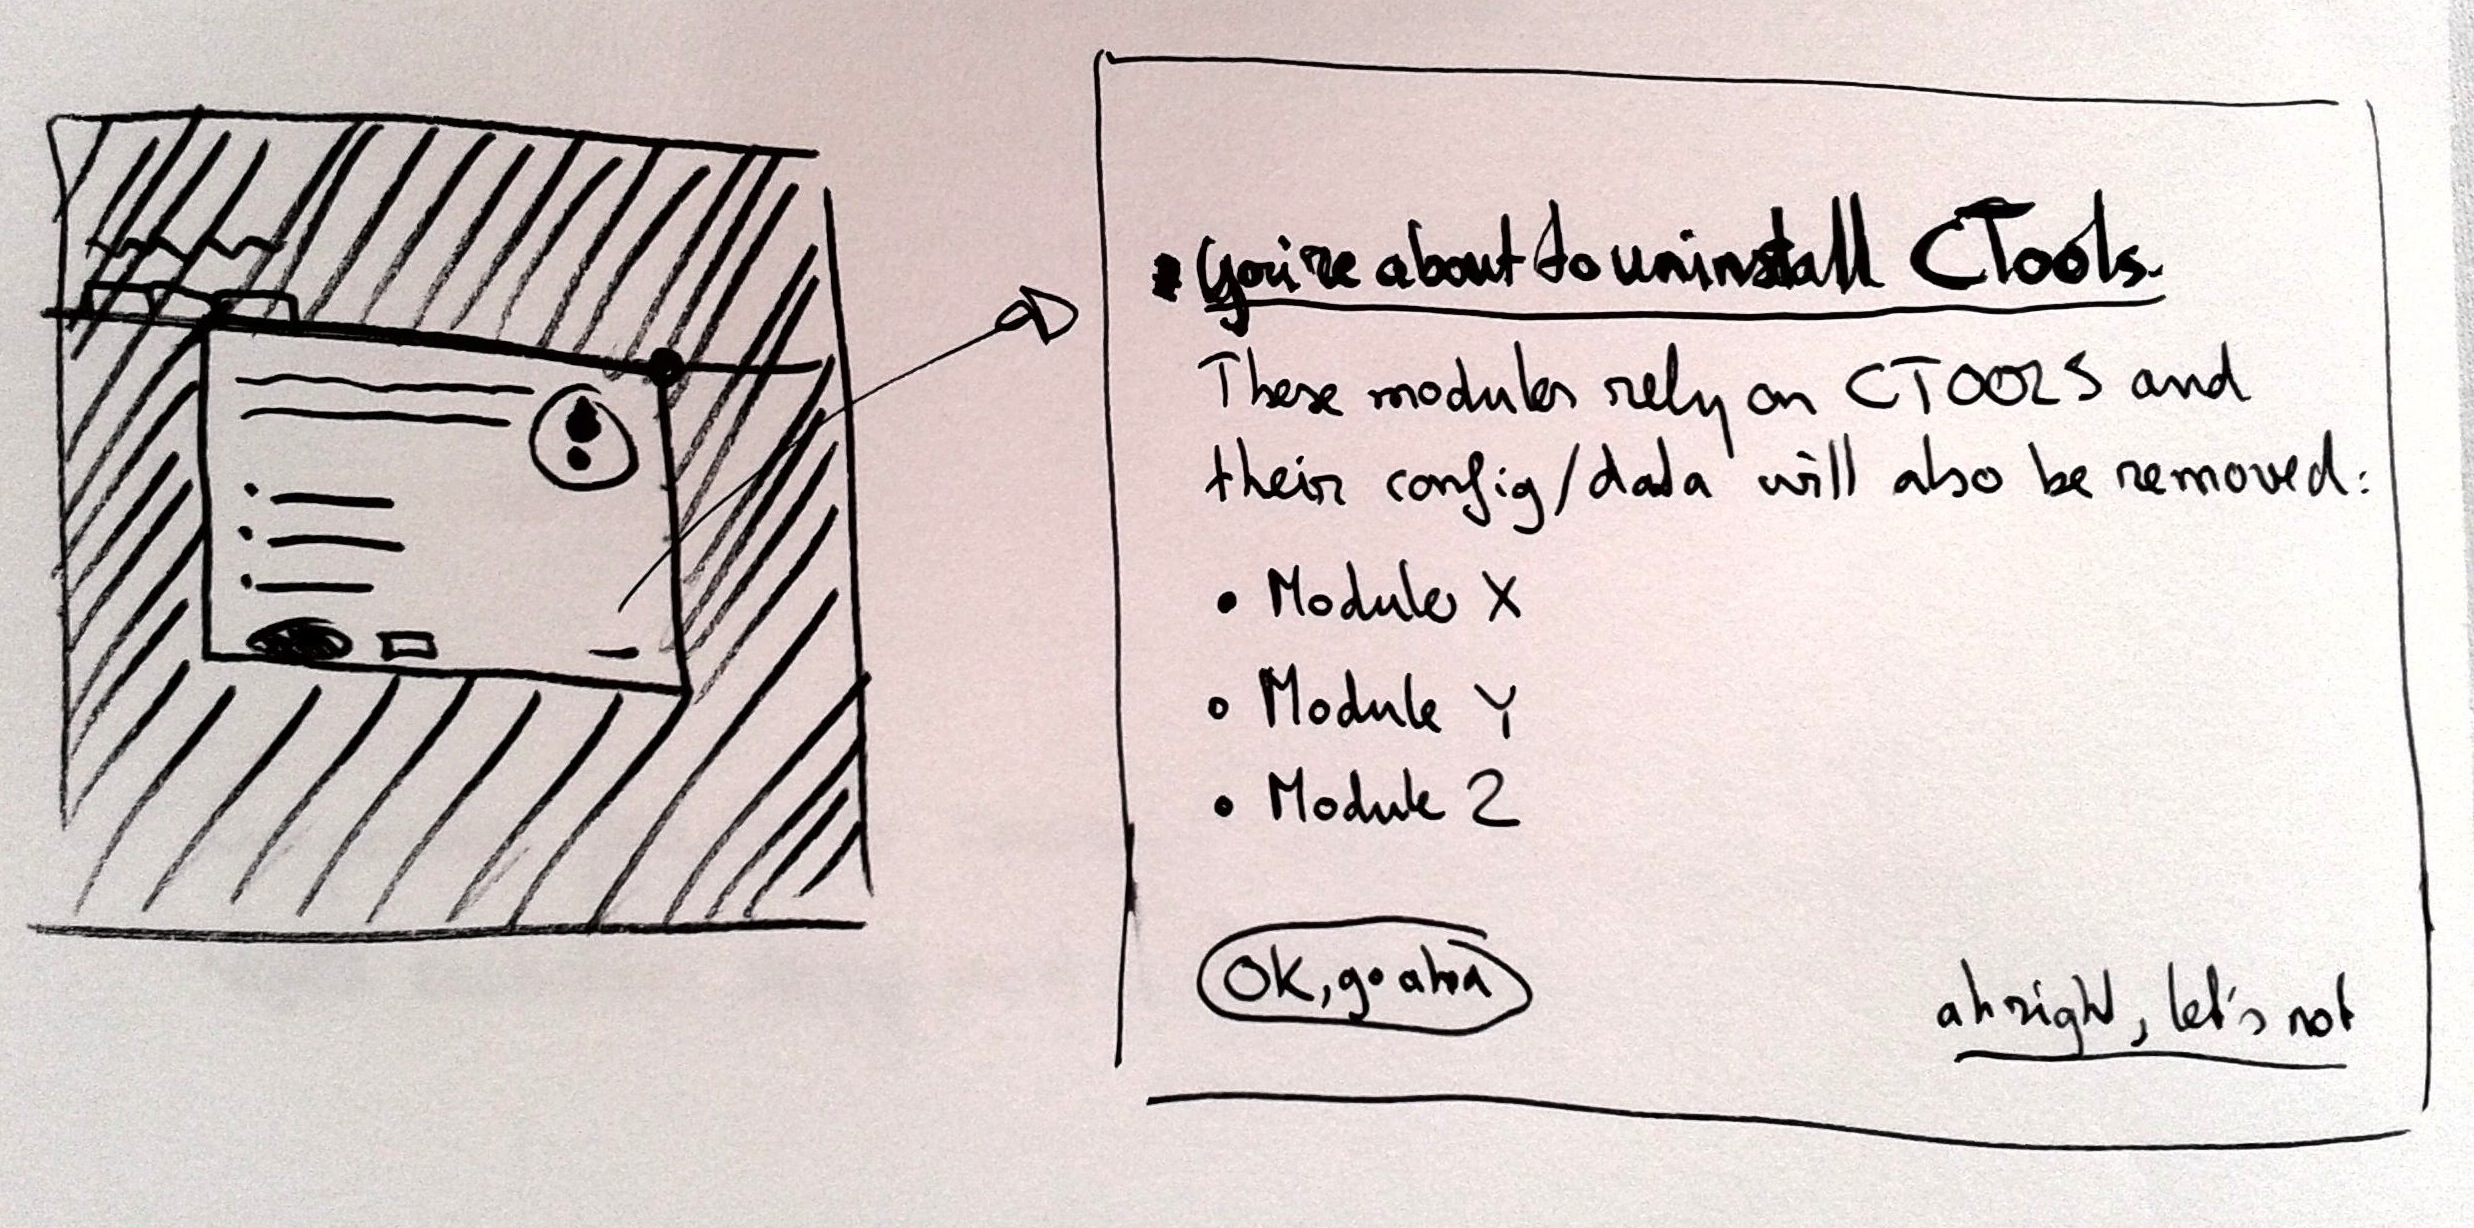 You're about to uninstall CTools.
These modules rely on CTOOLS and
their config/data will also be removed:
• Module X
• Module Y
• Module Z
OK, go ahea
ah right, let's not